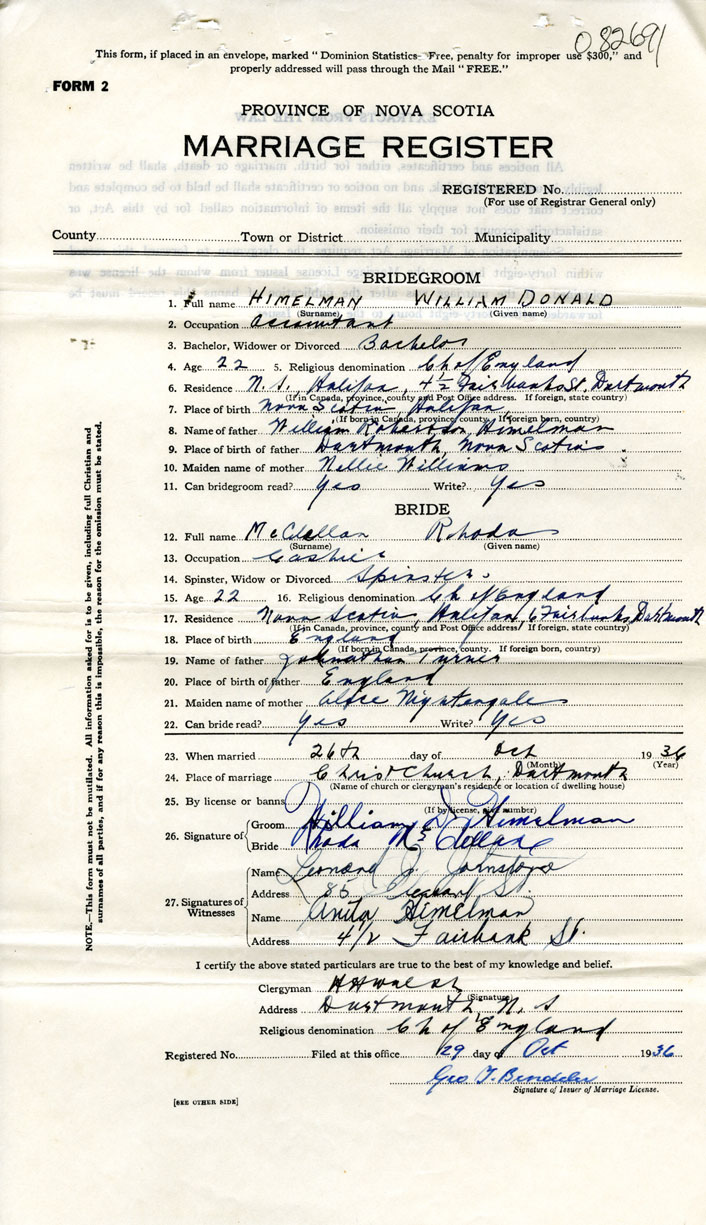 082691
This form, if placed in an envelope, marked "Dominion Statistics- Free, penalty for improper use $300," and
properly addressed will pass through the Mail "FREE."
FORM 2
PROVINCE OF NOVA SCOTIA
MARRIAGE REGISTER
REGISTERED No.
(For use of Registrar General only)
County Town or District Municipality
BRIDEGROOM
1. Full name HIMELMAN WILLIAM DONALD
(Surname) (Given name)
2. Occupation accountant
3. Bachelor, Widower or Divorced Bachelor
4. Age 22 5. Religious denomination Ch of England
6. Residence N.S. Halifax, 4½ Fairbanks St. Dartmouth
(If in Canada, province, county and Post Office address. If foreign, state country)
7. Place of birth Nova Scotia, Halifax
(If born in Canada, province, county. If foreign born, country)
8. Name of father William Himelman
9. Place of birth of father Dartmouth, Nova Scotia
10. Maiden name of mother Nellie Williams
11. Can bridegroom read? Yes Write? Yes
BRIDE
12. Full name McClellan Rhoda
(Surname) (Given name)
13. Occupation Cashier
14. Spinster, Widow or Divorced Spinster
15. Age 22 16. Religious denomination Ch of England
17. Residence Nova Scotia, Halifax, 6 Fairbanks, Dartmouth
(If in Canada, province, county and Post Office address If foreign, state country)
18. Place of birth England
(If born in Canada, province, county. If foreign born, country)
19. Name of father Johnathan Turner
20. Place of birth of father England
21. Maiden name of mother Alice Nightengale
22. Can bride read? Yes Write? Yes
23. When married 26th day of Oct 1936
(Month) (Year)
24. Place of marriage Christ Church, Dartmouth
(Name of church or clergyman's residence or location of dwelling house)
25. By license or banns
(If by license, give number)
26. Signature of Groom William D. Himelman
Bride Rhoda McClellan
27. Signatures of Witnesses
Name Leonard J. Johnstone
Address 85 St.
Name Anita Himelman
Address 4½ Fairbank St.
I certify the above stated particulars are true to the best of my knowledge and belief.
Clergyman HH Walsh
(Signature)
Address Dartmouth, N.S
Religious denomination Ch of England
Registered No. Filed at this office 29 day of Oct 1936
Geo T.
Signature of Issuer of Marriage License.
[SEE OTHER SIDE]
NOTE.—This form must not be mutilated. All information asked for is to be given, including full Christian and
surnames of all parties, and if for any reason this is impossible, the reason for the omission must be stated.